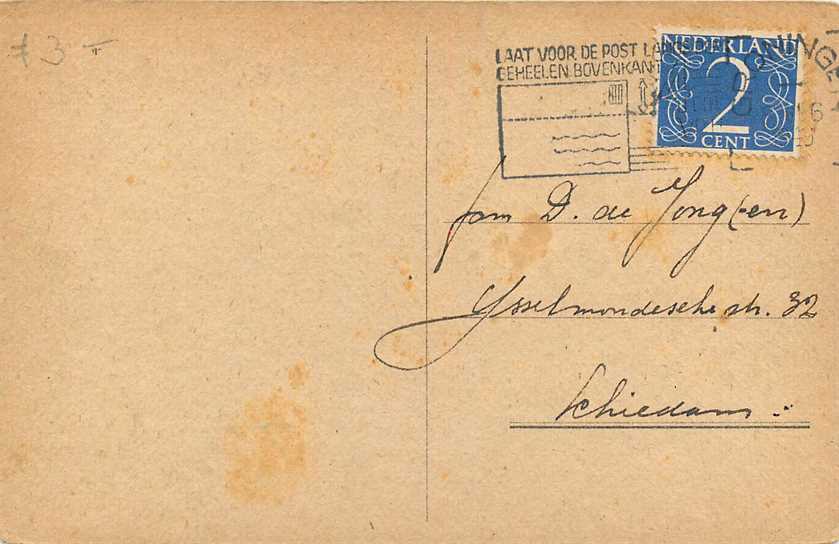 73-
LAAT VOOR DE POST LANGS
GEHEELEN BOVENKANT
NEDERLAND
2
CENT
fam D. de Jong(en)
Ysselmondesche str. 32
Schiedam.